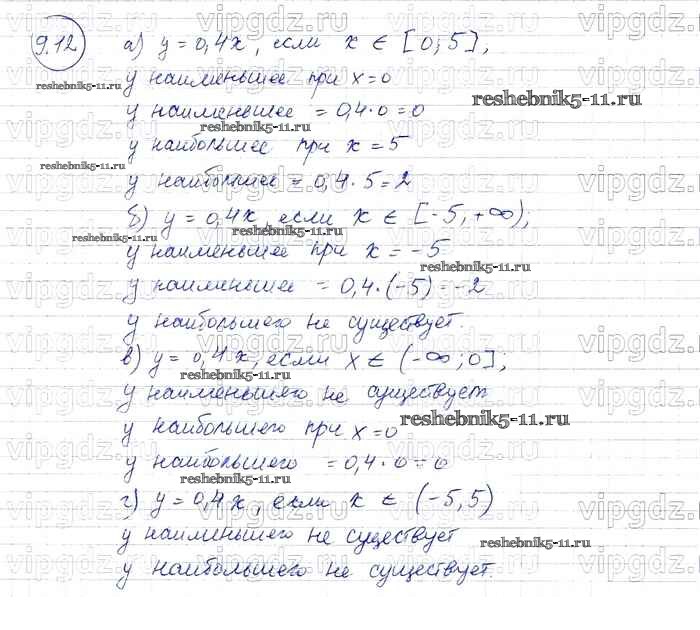 9.12 а) y = 0,4x, если x ∈ [0; 5],
y наименьшее при x = 0
y наименьшее = 0,4 · 0 = 0
y наибольшее при x = 5
y наибольшее = 0,4 · 5 = 2
б) y = 0,4x, если x ∈ [-5, +∞);
y наименьшее при x = -5
y наименьшее = 0,4 · (-5) = -2
y наибольшего не существует.
в) y = 0,4x, если x ∈ (-∞; 0];
y наименьшего не существует
y наибольшего при x = 0
y наибольшего = 0,4 · 0 = 0
г) y = 0,4x, если x ∈ (-5, 5)
y наименьшего не существует
y наибольшего не существует.
vipgdz.ru
reshebnik5-11.ru